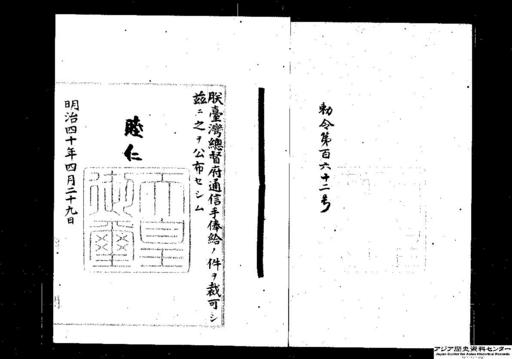 勅令第百六十二号
朕臺灣總督府通信手俸給ノ件ヲ裁可シ
茲ニ之ヲ公布セシム
睦仁
天皇
御璽
明治四十年四月二十九日
アジア歴史資料センター
Japan Center for Asian Historical Records